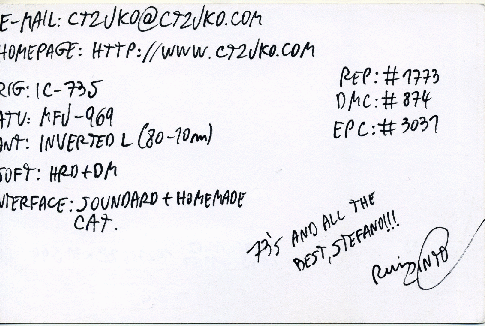 E-MAIL: CT2JKO@CT2JKO.COM
HOMEPAGE: HTTP://WWW.CT2JKO.COM
RIG: IC-735
ATU: MFJ-969
ANT: INVERTED L (80-10m)
SOFT: HRD+DM
NTERFACE: SOUNDARD + HOMEMADE
CAT.
REP: # 1773
DMC: # 874
EPC: # 3037
73's AND ALL THE
BEST, STEFANO!!!
PINTO